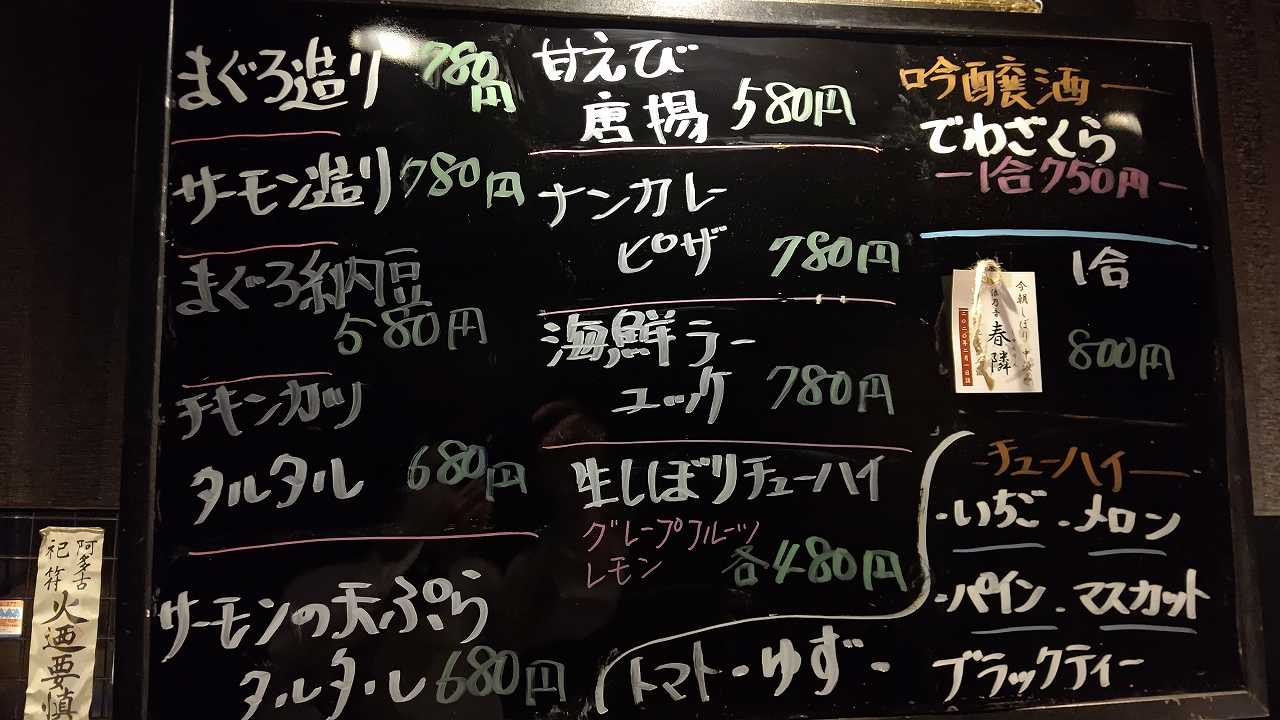 まぐろ造り 780円
サーモン造り 780円
まぐろ納豆
580円
チキンカツ
タルタル 680円
サーモンの天ぷら
タルタル 680円
甘えび
唐揚 580円
ナンカレー
ピザ 780円
海鮮ラー
ユッケ 780円
生しぼりチューハイ
グレープフルーツ
レモン 各480円
吟醸酒
でわざくら
1合750円
1合
800円
今朝しぼり
春隣
チューハイ
・いちご ・メロン
・パイン ・マスカット
トマト ・ゆず・
ブラックティー
阿多古
祀符
火迺要慎